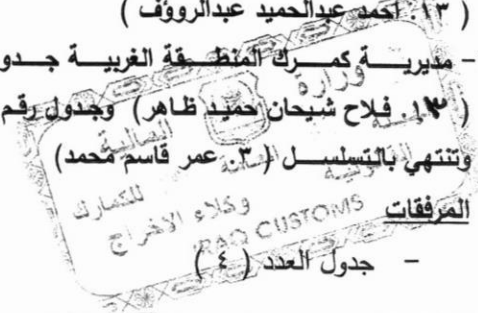 ( ١٣. احمد عبدالحميد عبدالرووف )
- مديريـــة كمـــرك المنطـــقة الغربيـــة جـــدو
( ١٣. فلاح شيحان حميد ظاهر) وجدول رقم
وتنتهي بالتسلســـل ( ٣. عمر قاسم محمد)
المرفقات
- جدول العدد ( ٤ )
وزارة
المالية
للكمارك
وكلاء الاخراج
IRAQ CUSTOMS